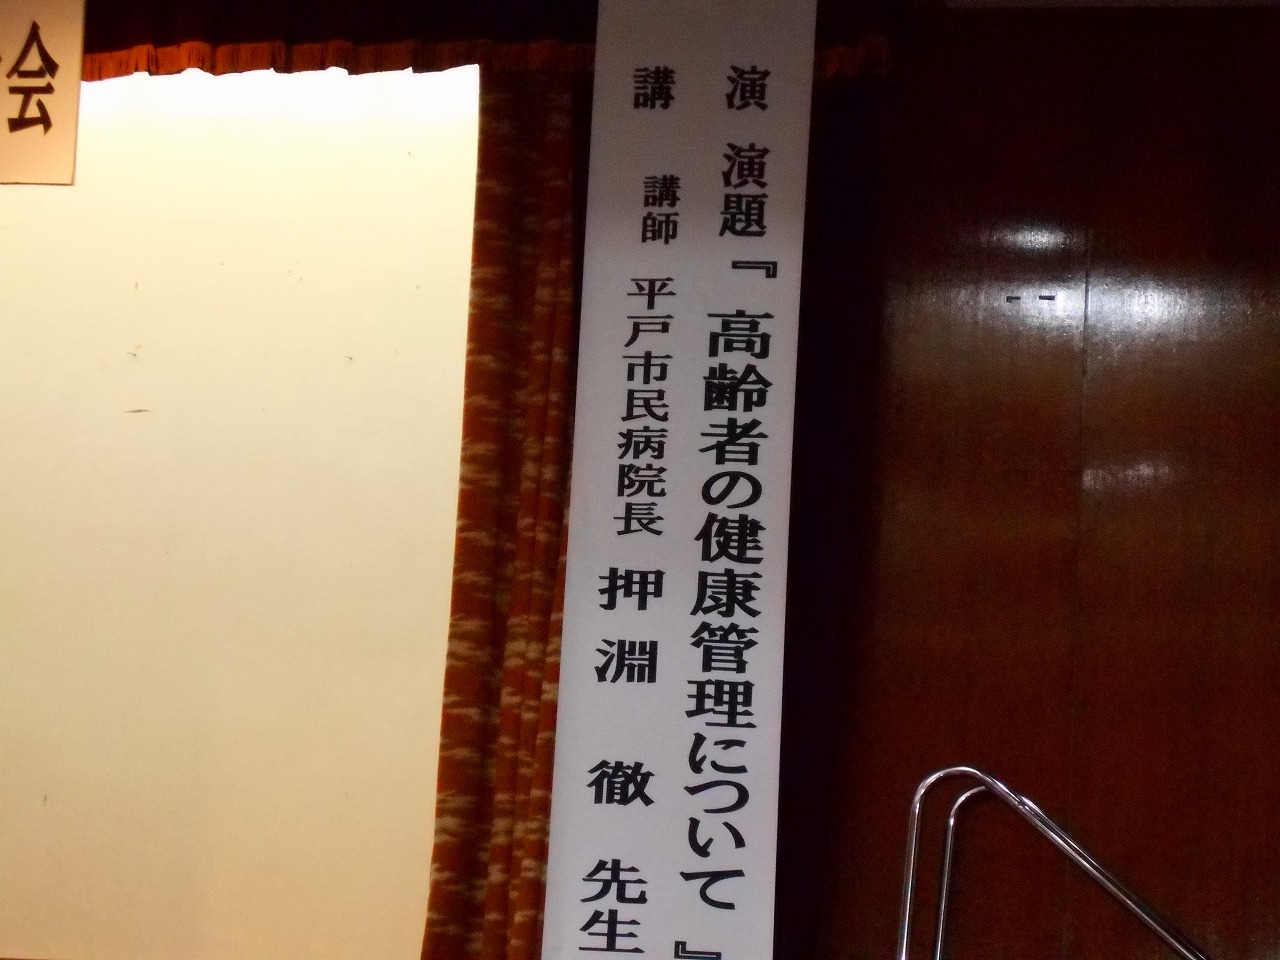 会
演 演題『 高齢者の健康管理について 』
講 講師 平戸市民病院長 押淵 徹 先生